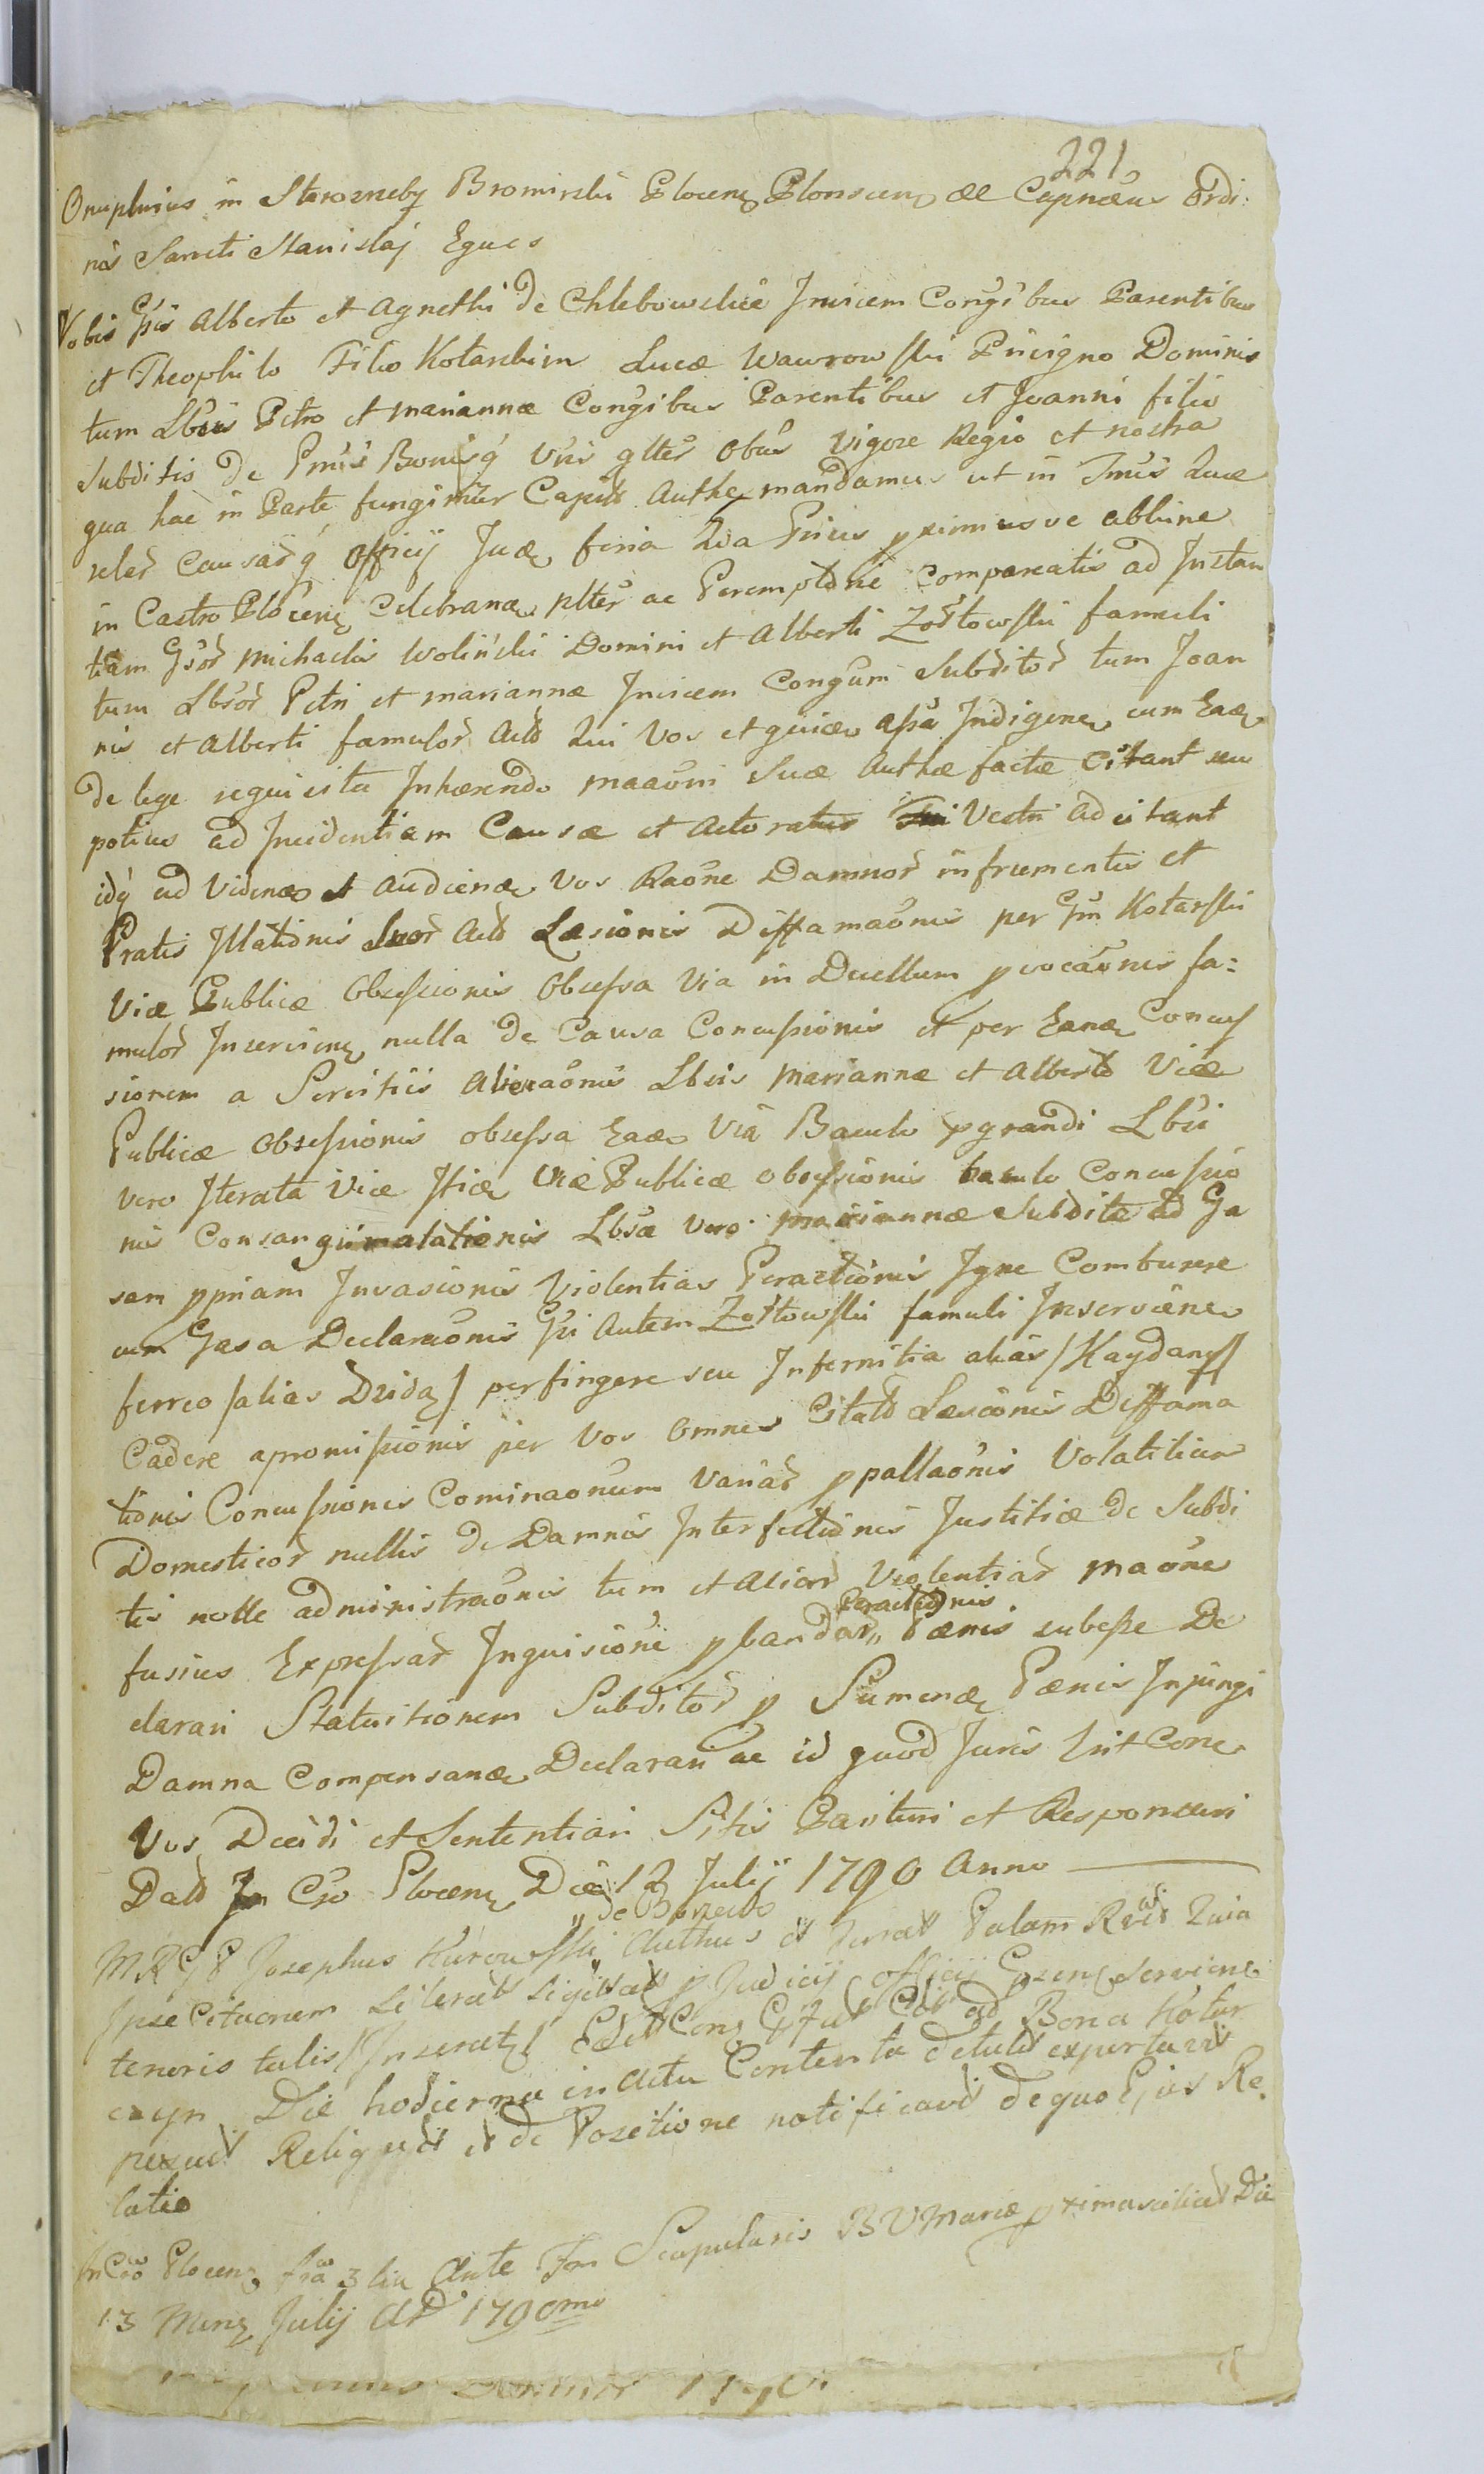 221
Onuphrius in Starozreby Bromirski Plocen Plonscen &c Capnæus Ordi:
nis Sancti Stanislaj Eques
Vobis Gsis Alberto et Agnethi de Chlebowskie Invicem Congibus Parentibus
et Theophilo Filio Kotarskim Lucæ Wawrowski Privigno Dominis
tum Lbsis Petro et Mariannæ Congibus Parentibus et Joanni filio
Subditis de Pmis Bonisq Vris gltes Obus Vigore Regio et nostra
qua hac in Parte fungimur Capits Authe mandamus ut in Jmis Quæ
relar Causarq Officij Jud feria 2da Prius pximiusve abhinc
in Castro Plocen Celebrand pltes ac Peremptorie compareatis ad Instan
tiam Gsor Michaelis Woliński Domini et Alberti Zołtowski famuli
tum Lbsor Petri et mariannæ Invicem Congum Subditor tum Joan
nis et Alberti famulor Actt Qui Vos et quid apsa Indigene cum Ead
de lege requisita Inhærendo maaoni Suæ Authæ factæ Citant seu
potius ad Incidentiam Causæ et Actoratus Vestri Adcitant
idq ad Videnđ et Audiend Vos Raone Damnor in frumentis et
Pratis Illationis Suor Actt Læsionis Diffamaonis per Gsm Kotarski
Viæ Publicæ Obsessionis Obsessa Via in Duellum pvocaonis fa:
mulor Inservien nulla de Causa Concussionis et per Eand Concus
sionem a Servitiis Alienaonis Lbsis Mariannæ et Alberto Viæ
Publicæ Obsessionis obsessa Ead Via Baculo pgrandi Lbsi
vero Iterata Vice Itid Viæ Publicæ obsessionis baculo Concussio
nis Consanguinalationis Lbsæ vero Mariannæ Subditæ ad Ga
sam ppriam Invasionis Violentias Peractionis Igne Comburere
cum Gasa Declaraonis Gsi Autem Zołtowski famuli Inservien
ferreo /alias Dzidą/ perfingere seu Infernitia alias /Kaydany/
Cadere apromissionis per Vos Omnes Citatt Læsionis Diffama
tionis Concussionis Cominaonum Variar ppallaonis Volatilium
Domesticor nullis de Damnis Interfectionis Justitiæ de Subdi
tis nolle administraonis tum et Alior Violentiar maone
Peractionis
fusius Expressar Inquisioni pbandar „ Pænis subesse De
clarari Statuitionem Subditor p Sumend Pænis Injungi
Damna Compensand Declarari ac id quod Juris erit Conc
Vos Decidi et Sententiari Sitis Parituri et Responsuri
Datt In Cso Plocen Die 12 Julij 1790 Anno
„ de Borzewo
MRGP Josephus Kurowski „ Authus et Jurat Palam Recit Quia
Ipse Citaonem Literat Sigillat p Judicij Officij Gsen Servien
tenoris talis /Inseratr/ ad Bona Kotar
czyn Die hodierna in Actu Contenta detulit exportavit
posuit Reliquit et de Positione notificavit de quo Ejus Re
latio
In Cso Plocen fria 3tia Ante Fm Scapularis B V Mariæ pxima scilicet Die
13 Mens Julij AD 1790mo